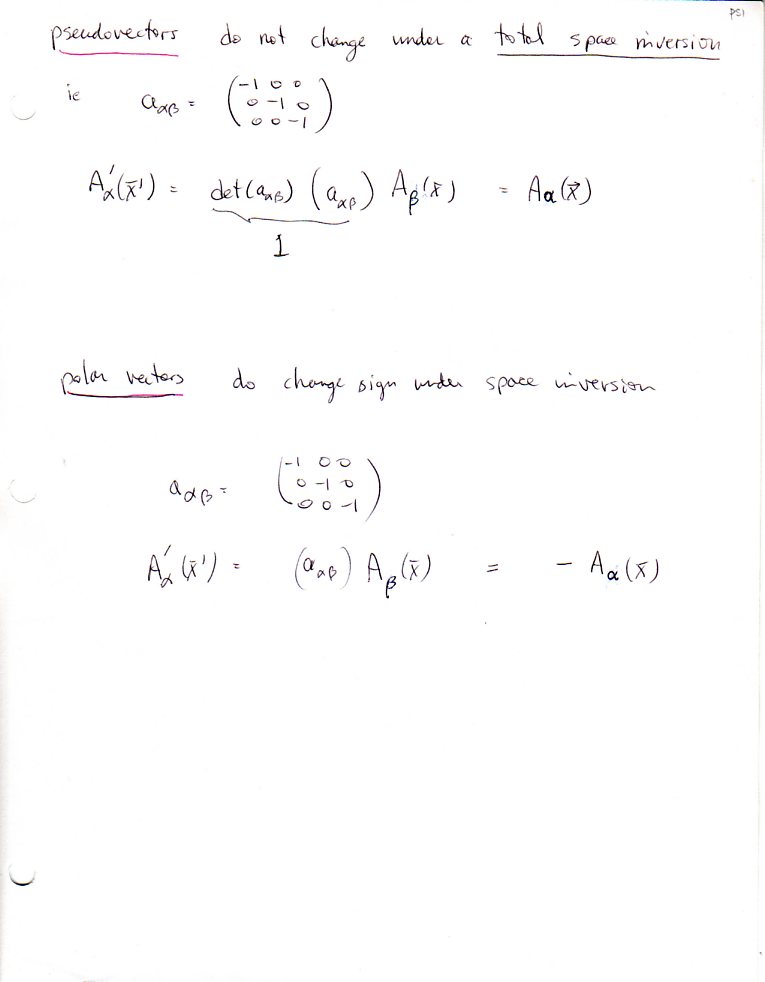 PS1
pseudovectors do not change under a total space inversion
ie a_αβ = (-1 0 0
0 -1 0
0 0 -1)
A'_α(x̄') = det(a_αβ) (a_αβ) A_β(x̄) = A_α(x⃗)
1
polar vectors do change sign under space inversion
a_αβ = (-1 0 0
0 -1 0
0 0 -1)
A'_α(x̄') = (a_αβ) A_β(x̄) = - A_α(x̄)